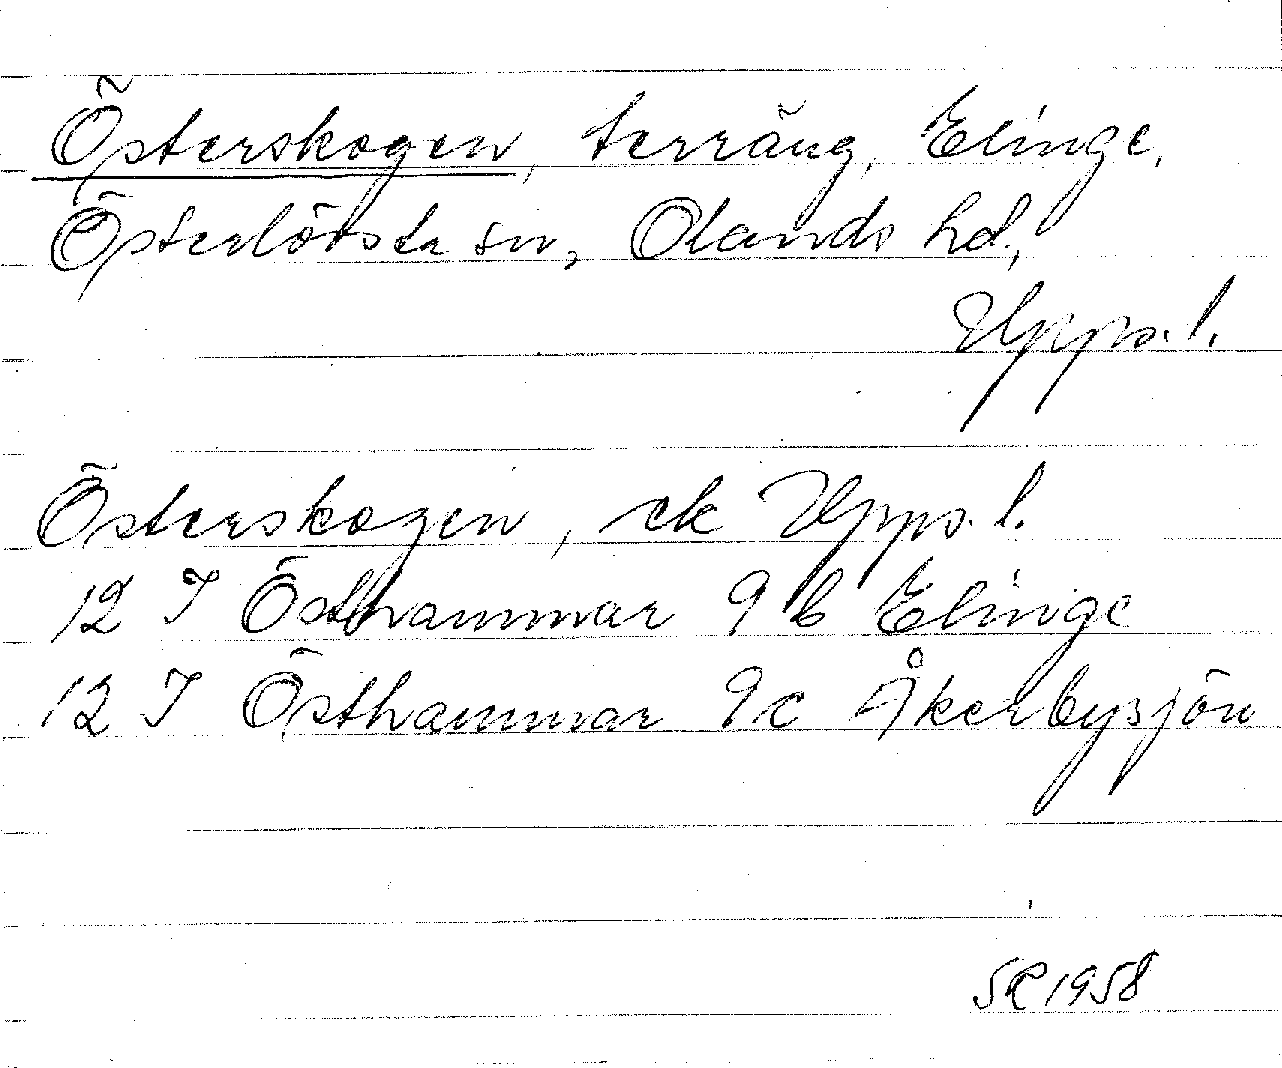 Österskogen, terräng, Elinge,
Österlövsta sn, Olands hd,
Upps. l.
Österskogen, ek Upps. l.
12 I Östhammar 9 b Elinge
12 I Östhammar 9 c Åkerbysjön
SR 1958